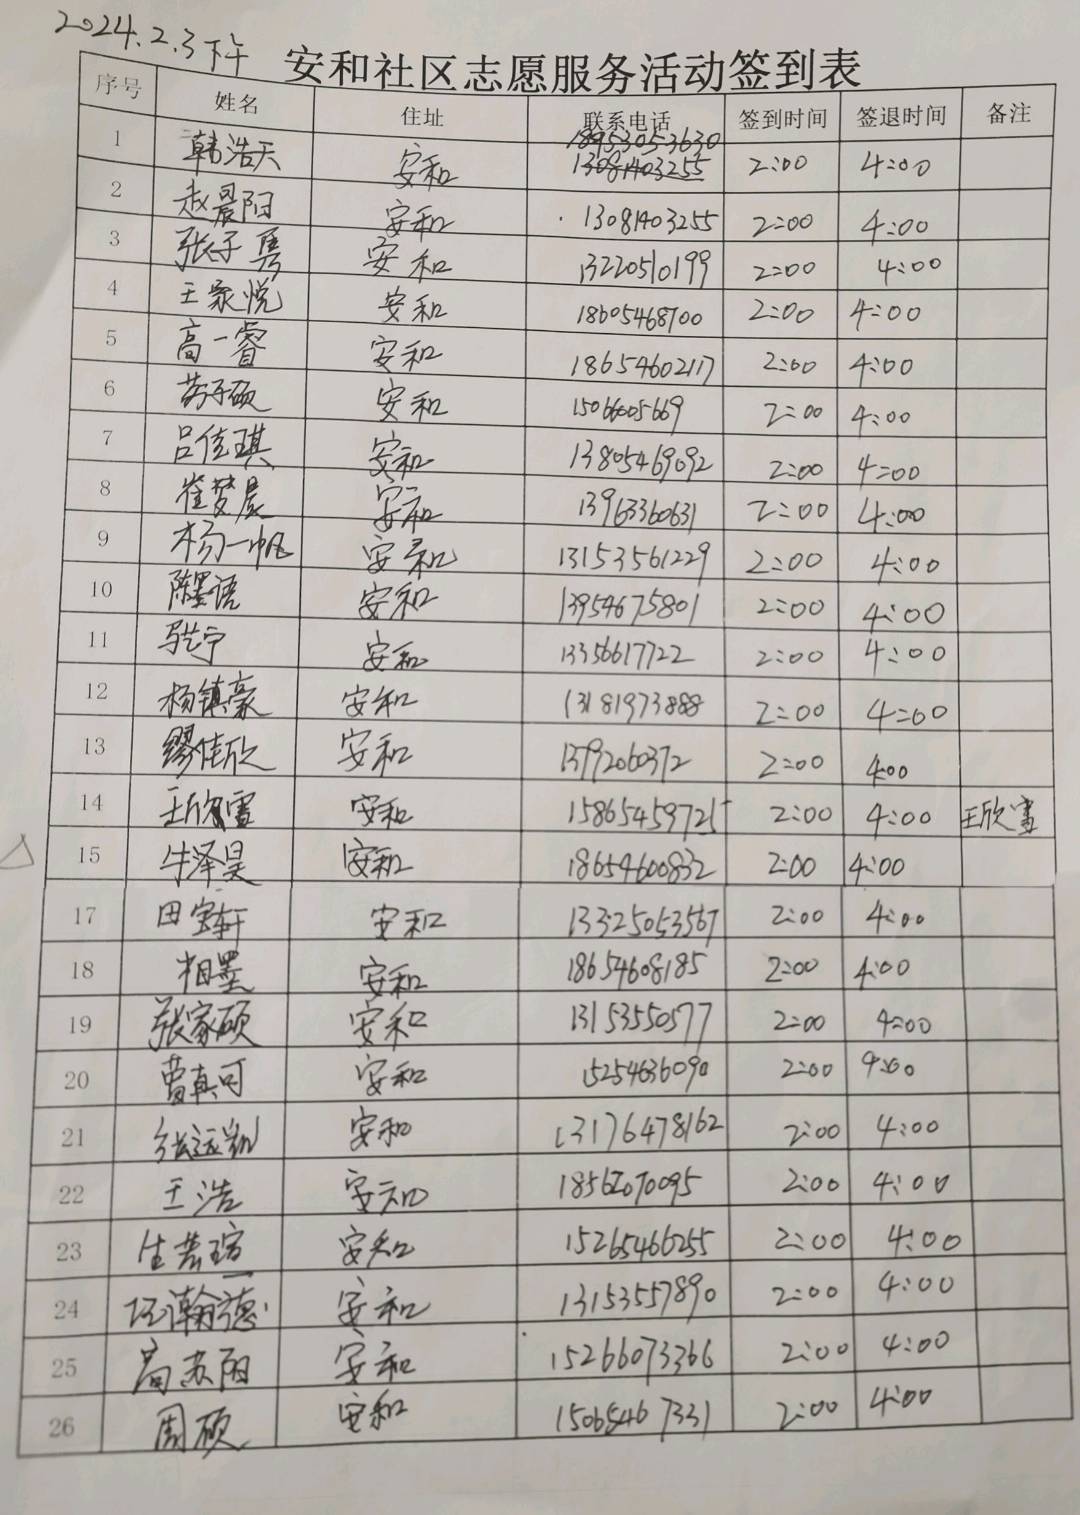 2024.2.3下午
安和社区志愿服务活动签到表
序号 姓名 住址 联系电话 签到时间 签退时间 备注
1 韩浩天 安和 18953053630 13081403255 2:00 4:00
2 赵晨阳 安和 13081403255 2:00 4:00
3 张子隽 安和 13220510199 2:00 4:00
4 王家悦 安和 18605468700 2:00 4:00
5 高一睿 安和 18654602117 2:00 4:00
6 苏子硕 安和 15066005669 2:00 4:00
7 吕佳琪 安和 13805469092 2:00 4:00
8 崔梦晨 安和 13963360631 2:00 4:00
9 杨一帆 安和 13153561229 2:00 4:00
10 陈墨语 安和 13954675801 2:00 4:00
11 安和 13356617722 2:00 4:00
12 杨镇豪 安和 13181973888 2:00 4:00
13 缪佳欣 安和 13792060372 2:00 4:00
14 王欣雪 安和 15865459725 2:00 4:00 王欣雪
15 牛泽昊 安和 18654600832 2:00 4:00
17 田宝轩 安和 13325053567 2:00 4:00
18 相墨 安和 18654608185 2:00 4:00
19 张家硕 安和 13153550577 2:00 4:00
20 曹真可 安和 15254636090 2:00 4:00
21 张远凯 安和 13176478162 2:00 4:00
22 王浩 安和 18562070095 2:00 4:00
23 生若瑄 安和 15265466255 2:00 4:00
24 瀚德 安和 13153557890 2:00 4:00
25 高苏阳 安和 15266073366 2:00 4:00
26 周硕 安和 15065467331 2:00 4:00